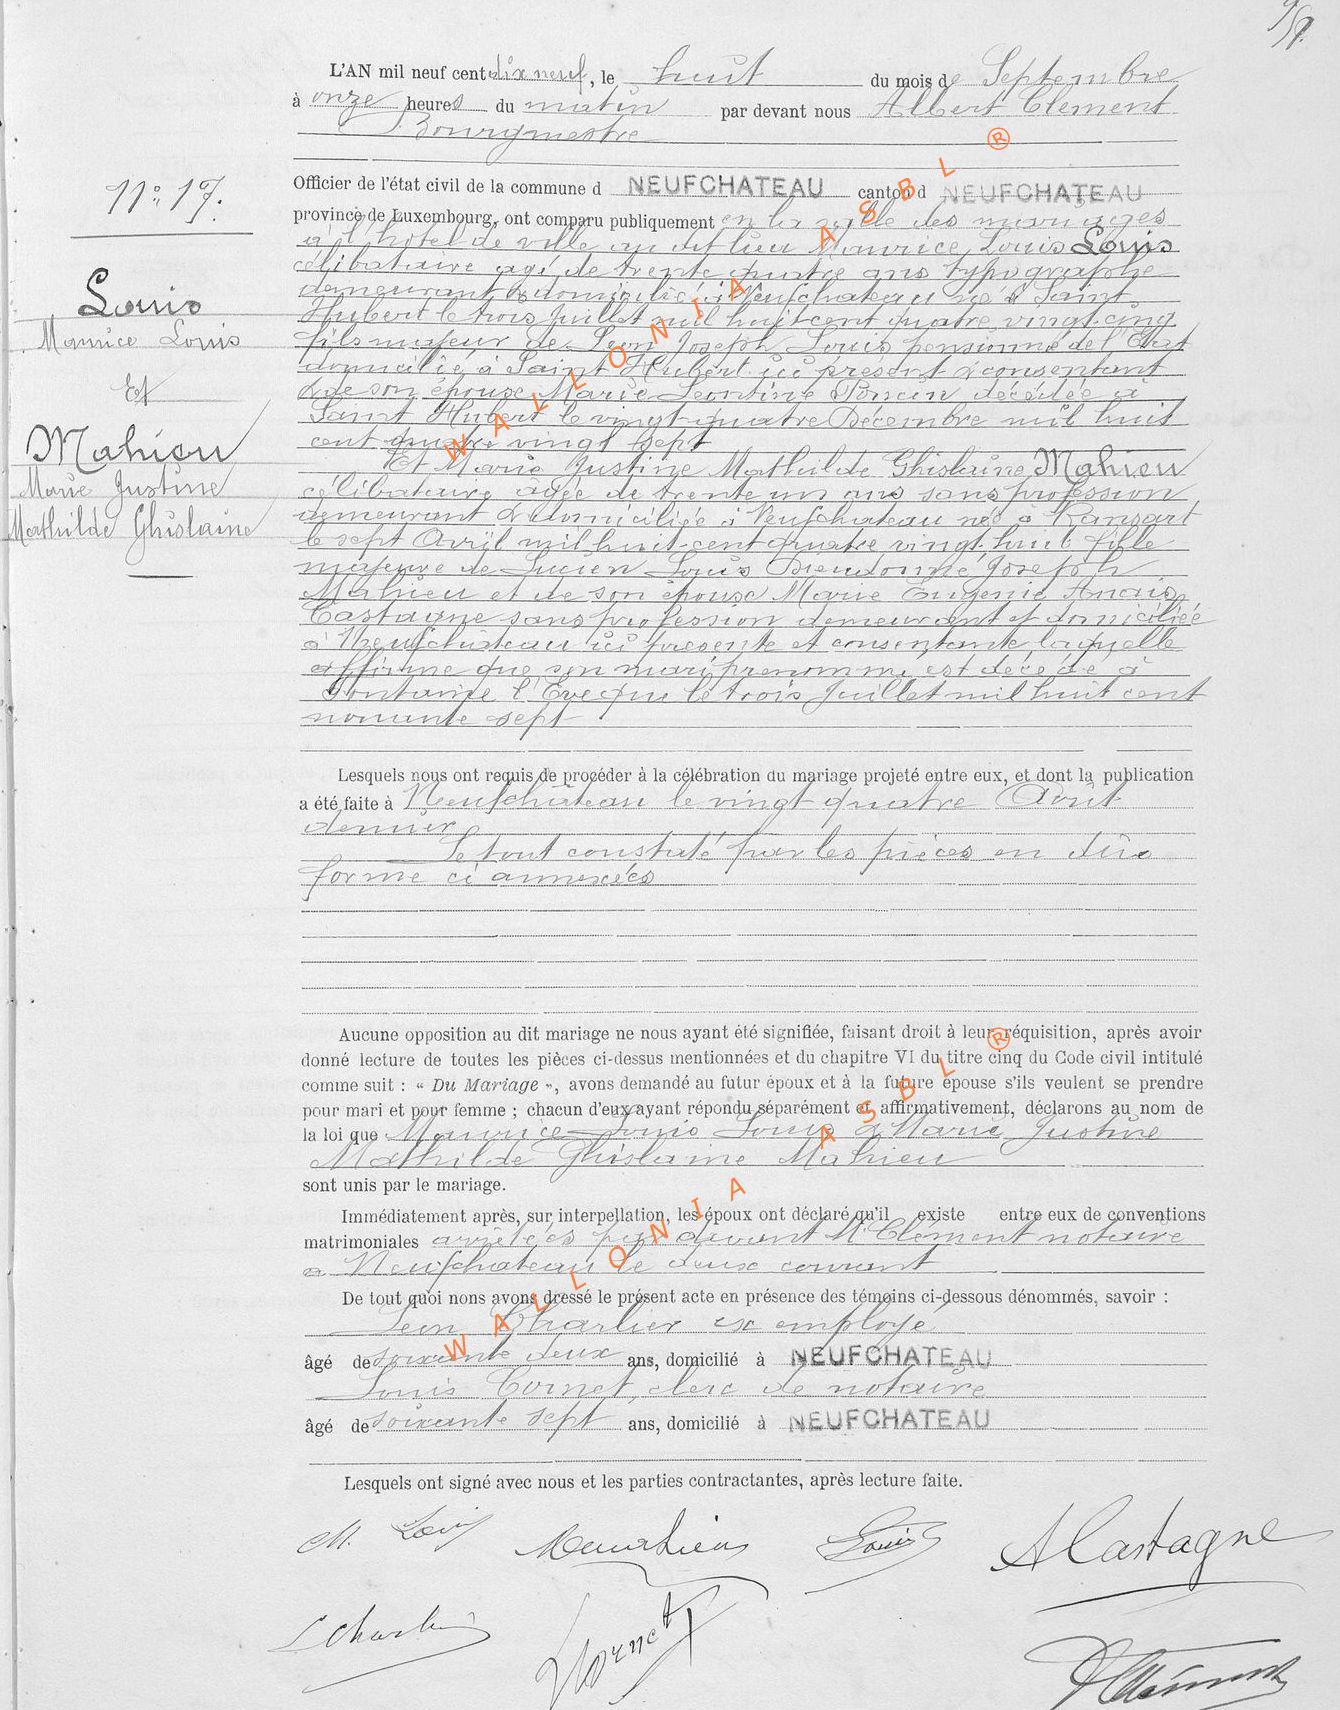 L'AN mil neuf cent dix neuf, le huit du mois de Septembre
à onze heures du matin par devant nous Albert Clément
Bourgmestre
Officier de l'état civil de la commune d NEUFCHATEAU canton d NEUFCHATEAU
province de Luxembourg, ont comparu publiquement en la salle des mariages
N° 17.
à l'hôtel de ville au dit lieu Maurice Louis Louis
célibataire agé de trente quatre ans typographe
demeurant & domicilié à Neufchateau né à Saint
Hubert le trois Juillet mil huit cent quatre vingt-cinq
fils majeur de Léon Joseph Louis pensionné de l'Etat
domicilié à Saint Hubert ici présent & consentant
& de son épouse Marie Léontine Poncin décédée à
Saint Hubert le vingt quatre Décembre mil huit
cent quatre vingt sept
Louis
Maurice Louis
Et
Mahieu
Marie Justine
Mathilde Ghislaine
Et Marie Justine Mathilde Ghislaine Mahieu
célibataire agée de trente un ans sans profession
demeurant & domiciliée à Neufchateau née à Ransart
le sept Avril mil huit-cent quatre vingt-huit fille
majeure de Lucien Louis Dieudonné Joseph
Mahieu et de son épouse Marie Eugenie Anais
Castagne sans profession demeurant et domiciliée
à Neufchateau ici presente et consentante laquelle
affirme que son mari prénommé est décédé à
Fontaine l'Evêque le trois Juillet mil huit cent
nonante sept
Lesquels nous ont requis de procéder à la célébration du mariage projeté entre eux, et dont la publication
a été faite à Neufchâteau le vingt quatre Août
dernier
Le tout constaté par les pièces en due
forme ci annexées
Aucune opposition au dit mariage ne nous ayant été signifiée, faisant droit à leur réquisition, après avoir
donné lecture de toutes les pièces ci-dessus mentionnées et du chapitre VI du titre cinq du Code civil intitulé
comme suit : « Du Mariage », avons demandé au futur époux et à la future épouse s'ils veulent se prendre
pour mari et pour femme ; chacun d'eux ayant répondu séparément et affirmativement, déclarons au nom de
la loi que Maurice Louis Louis & Marie Justine
Mathilde Ghislaine Mahieu
sont unis par le mariage.
Immédiatement après, sur interpellation, les époux ont déclaré qu'il existe entre eux de conventions
matrimoniales arrêtées par devant Me Clément notaire
à Neufchateau le deux courant
De tout quoi nons avons dressé le présent acte en présence des témoins ci-dessous dénommés, savoir :
Leon Charlier ex employé
âgé de soixante deux ans, domicilié à NEUFCHATEAU
Louis Cornet, clerc de notaire
âgé de soixante sept ans, domicilié à NEUFCHATEAU
Lesquels ont signé avec nous et les parties contractantes, après lecture faite.
M. Louis Mahieu Louis A Castagne
L Charlier LCornet AClément
WALLONIA ASBL ®
WALLONIA ASBL ®